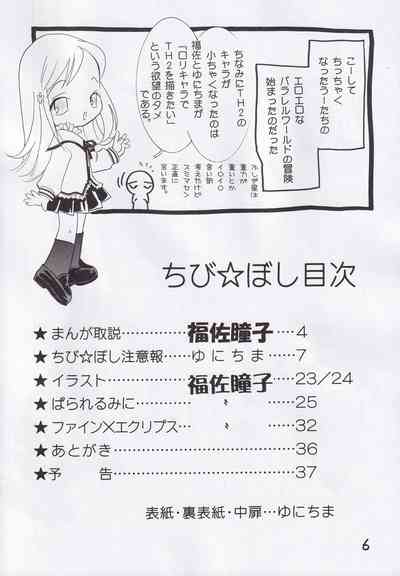 こーして
ちっちゃく
なったうーたちの
エロエロな
パラレルワールドの冒険
始まったのだった
ちなみにTH2の
キャラが
小ちゃくなったのは
福佐とゆにちまが
「ロリキャラで
TH2を描きたい」
という欲望のタメ
である。
重力が
重いとか
言い訳
イロイロ
考えたけど
スミマセン
正直に
言います。
ちび☆ぼし目次
★まんが取説…………福佐瞳子…4
★ちび☆ぼし注意報…ゆにちま……7
★イラスト……………福佐瞳子…23/24
★ぱられるみに………〃………25
★ファイン×エクリプス…〃………32
★あとがき……………………………36
★予　告………………………………37
表紙・裏表紙・中扉…ゆにちま
6